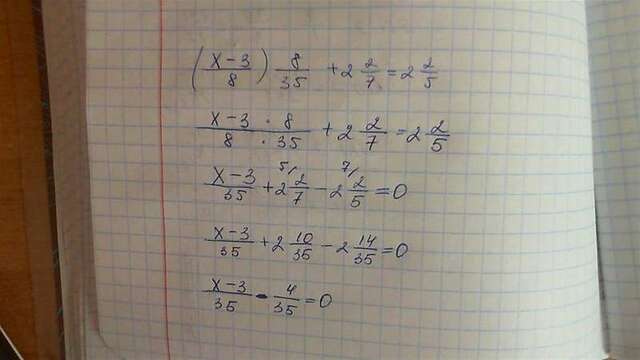 (x-3/8) 8/35 + 2 2/7 = 2 2/5
x-3 · 8 / 8 · 35 + 2 2/7 = 2 2/5
x-3/35 + 2 5/ 2/7 - 2 7/ 2/5 = 0
x-3/35 + 2 10/35 - 2 14/35 = 0
x-3/35 - 4/35 = 0